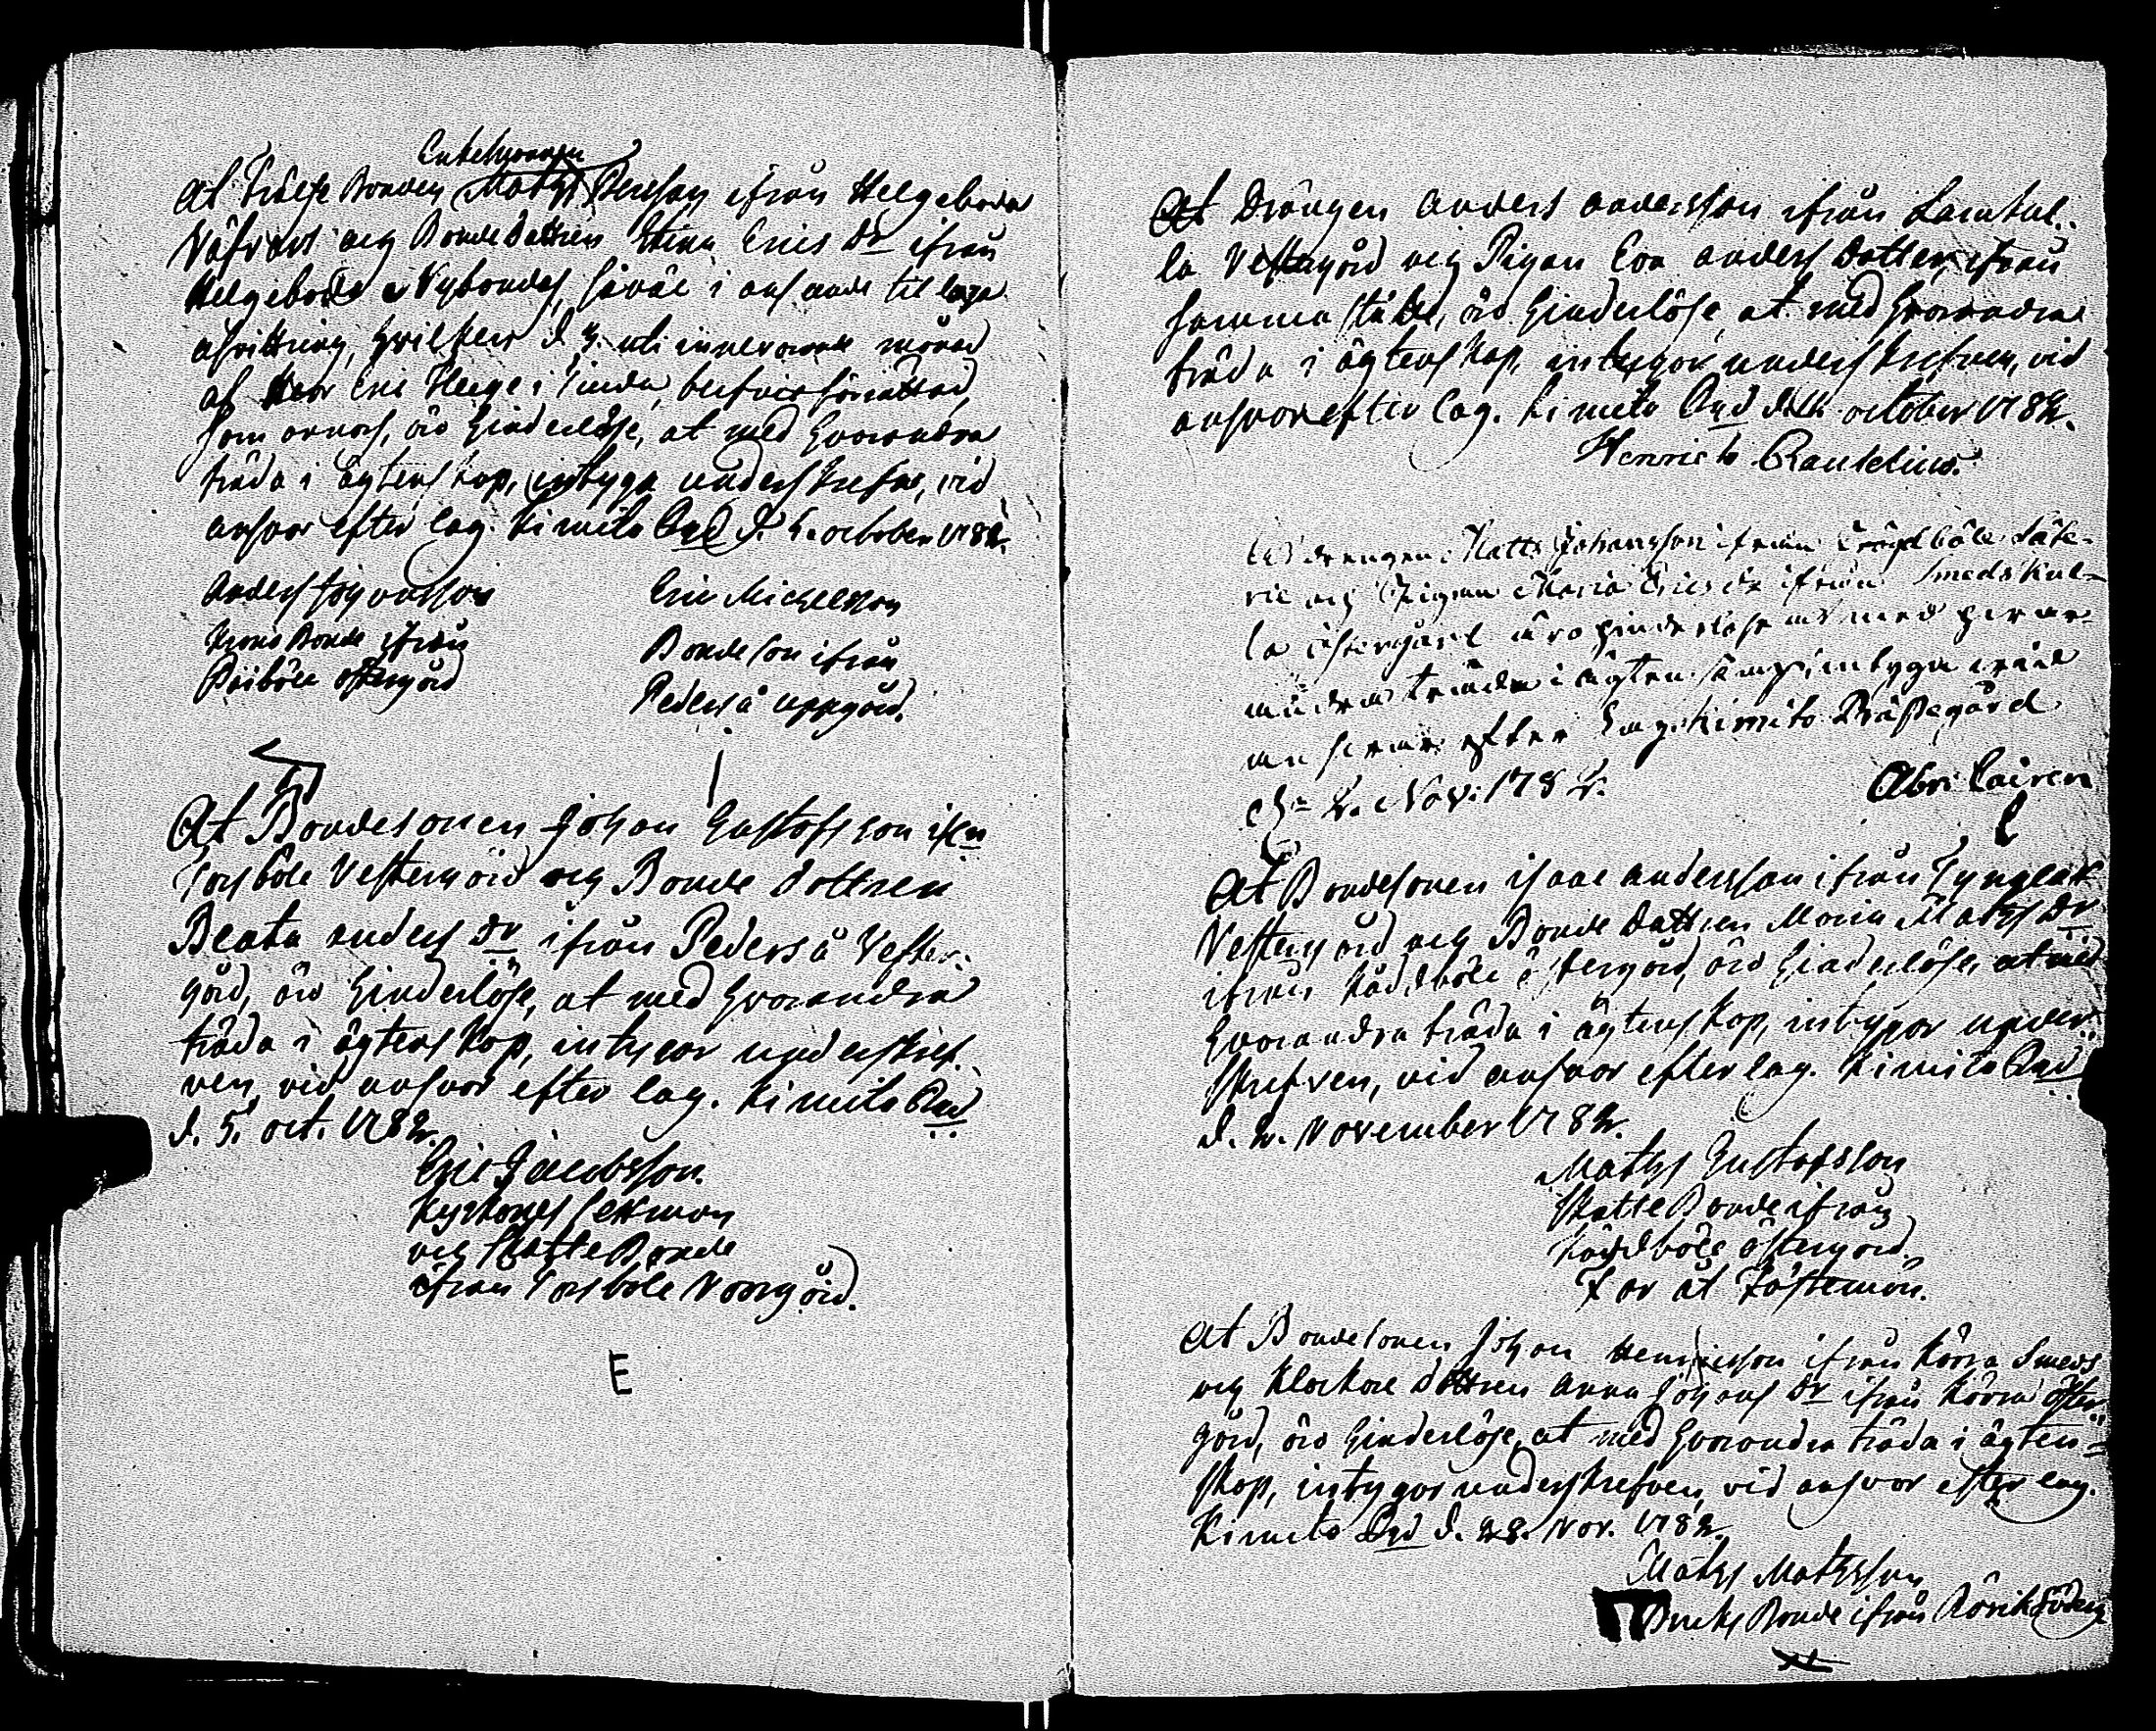 Enkelmannen
At Frälse Bonden Mats Persson ifrån Helgeboda
Näfvers och Bonde dottren Stina Erics Dr ifrån
Helgeboda Nybondas, såväl i anseende til laga
afvittring, hvilken d. 3 uti innevarande månad
af Herr Eric Hege i Sunda, befvis förrättad,
som annors, äro hinderlöse, at med hvarandra
träda i ägtenskap, intyga underskrefne, vid
ansvar efter lag. Kimito Pgd d. 5. october 1782.
Anders Johansson
Krono Bonde ifrån
Påiböle östergård
Eric Michelsson
Bondeson ifrån
Pederså uppgård.
At Bondesonen Johan Gustafsson ifrn
Torsböle Vestergård och Bonde dottren
Beata Anders Dr ifrån Pederså Vester-
gård, äro hinderlöse, at med hvarandra
träda i ägtenskap, intygar underskref-
ven, vid ansvar efter lag. Kimito Pgd
d. 5. oct. 1782.
Eric Jacobsson.
Kyrkones Sexman
och Skatte Bonde
ifrån Torsböle Norrgård.
E
At Drängen Anders Andersson ifrån Lamkul-
la Vestergård och Pigan Eva Anders Dotter, ifrån
samma ställe, äro hinderlöse, at med hvarandra
träda i ägtenskap, intygar underskrefven, vid
ansvar efter lag. Kimito Pgd d. october 1782.
Henrich
At drengen Matts Johansson ifrån Tröjböle Säte-
rie och Pigan Maria Erics dr ifrån Smedskul-
la Östergård äro hinderlöse at med hvar-
andra träda i ägtenskap, intygar under
ansvar efter Lag. Kimito Prästegård
d. 2. Nov: 1782.
Abr: Cairen
At Bondesonen Isaac Andersson ifrån Tynglax
Vestergård och Bonde dottren Maria Mats Dr
ifrån Kåddböle östergård, äro hinderlöse, at med
hvarandra träda i ägtenskap, intygar under-
skrefven, vid ansvar efter lag. Kimito Pgd
d. 2. November 1782.
Mats Gustafsson
Skatte Bonde ifrån
Kåddböle östergård.
Far åt Fästemön.
At Bondesonen Johan Henricsson ifrån Kärra Smeds
och Klockare dottren Anna Johans Dr ifrån Kärra öster-
gård, äro hinderlöse, at med hvarandra träda i ägten-
skap, intygar underskrefven, vid ansvar efter lag.
Kimito Pgd d. 28. Nov. 1782.
Mats Matsson
Bruks Bonde ifrån Rörik